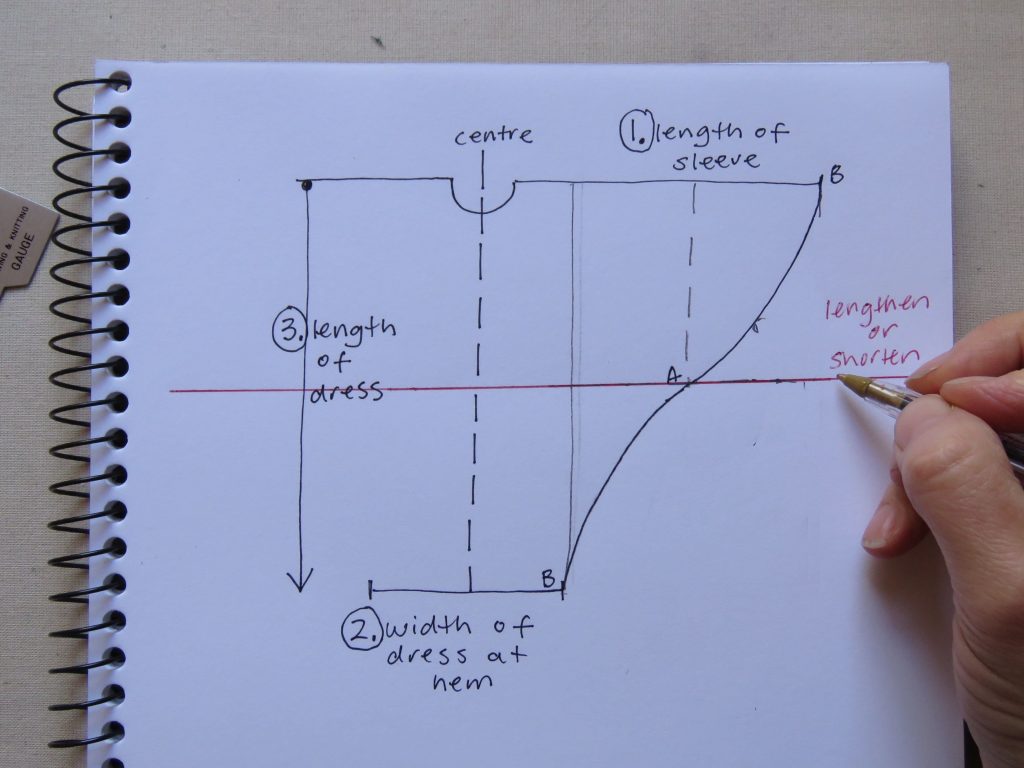 centre
1. length of
sleeve
B
3. length
of
dress
lengthen
or
shorten
A
B
2. width of
dress at
hem
& KNITTING
GAUGE